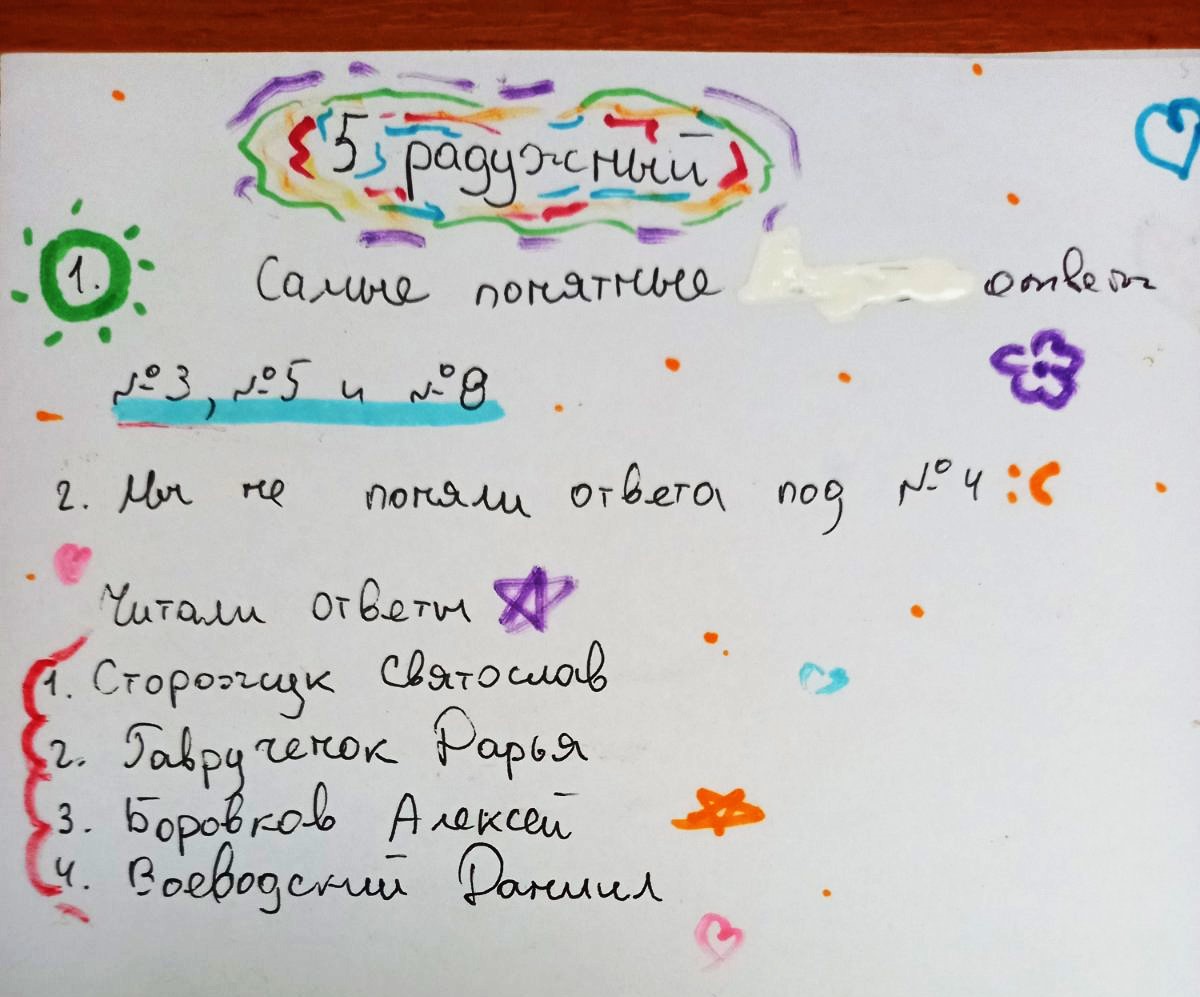 5 радужный
1. Самые понятные ответы
№3, №5 и №8
2. Мы не поняли ответа под №4 :(
Читали ответы
1. Сторожук Святослав
2. Гаврученок Дарья
3. Боровков Алексей
4. Воеводский Даниил